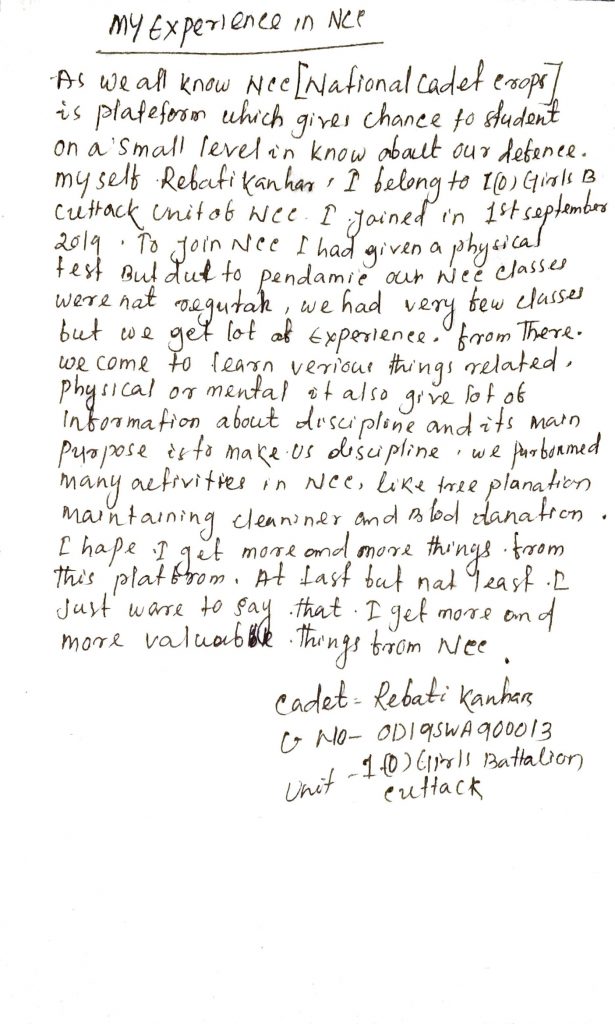 My Experience in NCC
As we all know Ncc [National Cadet Crops]
is plateform which gives chance to student
on a small level in know aboult our defence.
my self Rebati Kanhar, I belong to 1(0) Girls B
Cuttack Unit of NCC. I joined in 1st september
2019. To join NCC I had given a physical
test But dut to pendamic our Ncc classes
were nat regutar, we had very few classes
but we get lot of Experience. from There.
we come to learn verious things related.
physical or mental it also give lot of
Information about discipline and its main
Purpose is to make us discipline. we purbormed
many activities in NCC, like tree planation
Maintaining cleaniner and Blod danation.
I hape I get more and more things from
this platfrom. At last but nat least I
Just ware to say that. I get more and
more valuable things from Ncc.
Cadet - Rebati Kanhar
G No- OD19SWA900013
Unit - 1(0) Girls Battalion
Cuttack